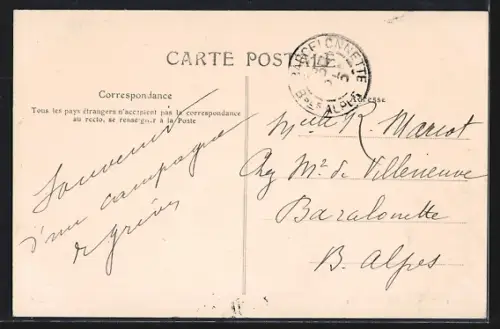 CARTE POSTALE
BARCELONNETTE
Bses ALPES
Correspondance
Tous les pays étrangers n'acceptent pas la correspondance
au recto, se renseigner à la Poste
Adresse
Souvenir
d'une campagne
de grèves
Melle R. Mariot
Chez Mr de Villeneuve
Barcelonette
B. Alpes